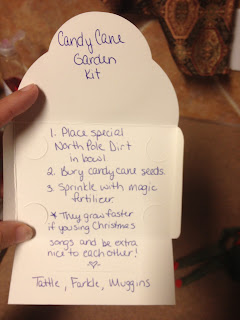 Candy Cane
Garden
Kit
1. Place special
North Pole Dirt
in bowl
2. Bury candy cane seeds.
3. Sprinkle with magic
fertilizer.
* They grow faster
if you sing Christmas
songs and be extra
nice to each other!
Tattle, Farkle, Muggins